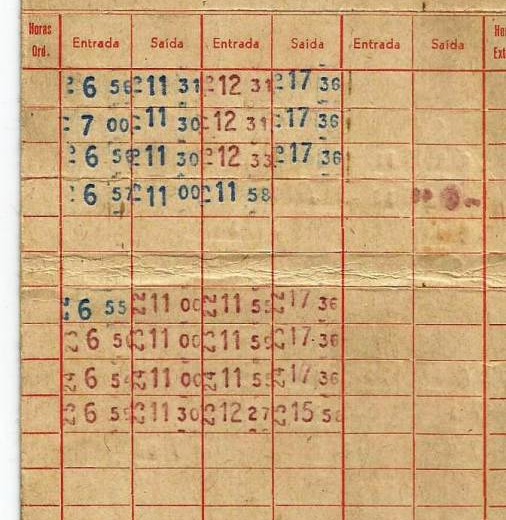 Horas Ord. Entrada Saída Entrada Saída Entrada Saída
6 56 11 31 12 31 17 36
7 00 11 30 12 31 17 36
6 56 11 30 12 33 17 36
6 57 11 00 11 58
6 55 11 00 11 55 17 36
11 00 11 59 17 36
11 00 11 55 17 36
11 30 12 27 15